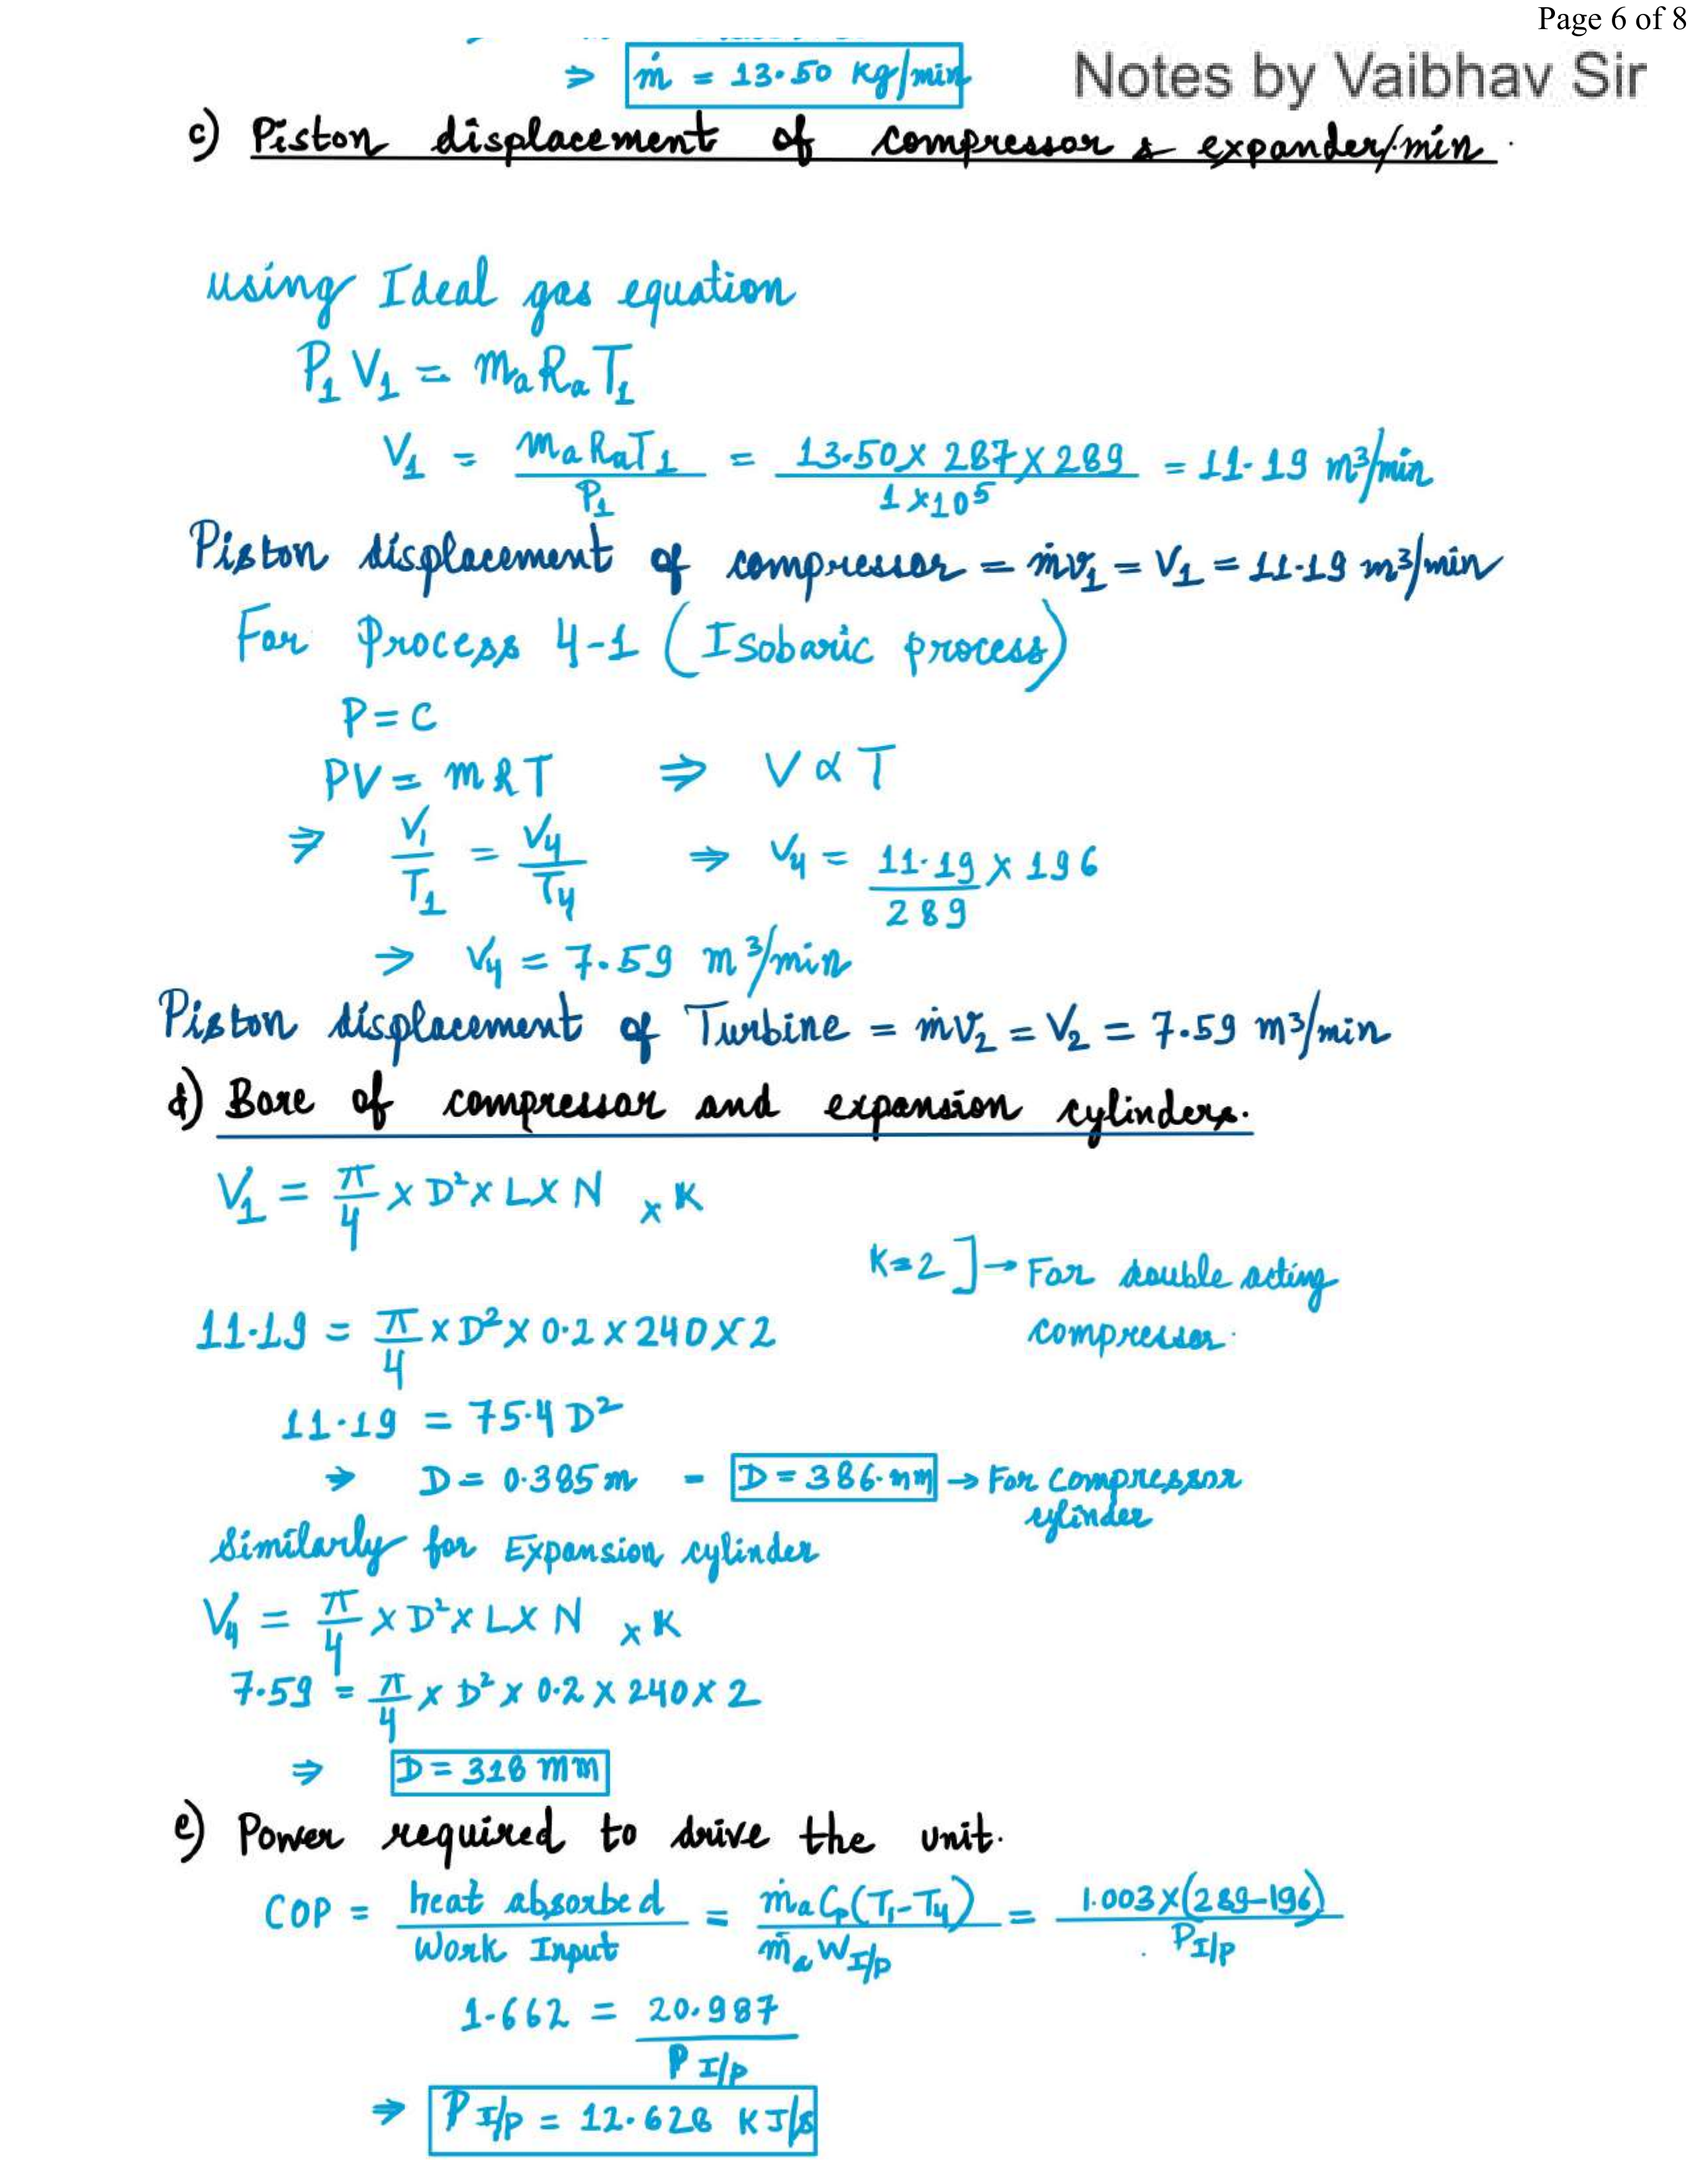 Page 6 of 8
⇒ ṁ = 13.50 kg/min
Notes by Vaibhav Sir
c) Piston displacement of compressor & expander/min.
using Ideal gas equation
P₁V₁ = mₐRₐT₁
V₁ = mₐRₐT₁/P₁ = 13.50 × 287 × 289/1×10⁵ = 11.19 m³/min
Piston displacement of compressor = ṁv₁ = V₁ = 11.19 m³/min
For Process 4-1 (Isobaric process)
P = C
PV = mRT ⇒ V ∝ T
⇒ V₁/T₁ = V₄/T₄ ⇒ V₄ = 11.19/289 × 196
⇒ V₄ = 7.59 m³/min
Piston displacement of Turbine = ṁv₂ = V₂ = 7.59 m³/min
d) Bore of compressor and expansion cylinders.
V₁ = π/4 × D² × L × N × K
K=2 ] → For double acting
compressor.
11.19 = π/4 × D² × 0.2 × 240 × 2
11.19 = 75.4 D²
⇒ D = 0.385 m - D = 386.mm → For Compressor
cylinder
Similarly for Expansion cylinder
V₄ = π/4 × D² × L × N × K
7.59 = π/4 × D² × 0.2 × 240 × 2
⇒ D = 318 mm
e) Power required to drive the unit.
COP = heat absorbed/Work Input = ṁₐCp(T₁-T₄)/ṁₐ W I/p = 1.003×(289-196)/P I/p
1.662 = 20.987/P I/p
⇒ P I/p = 12.628 KJ/s